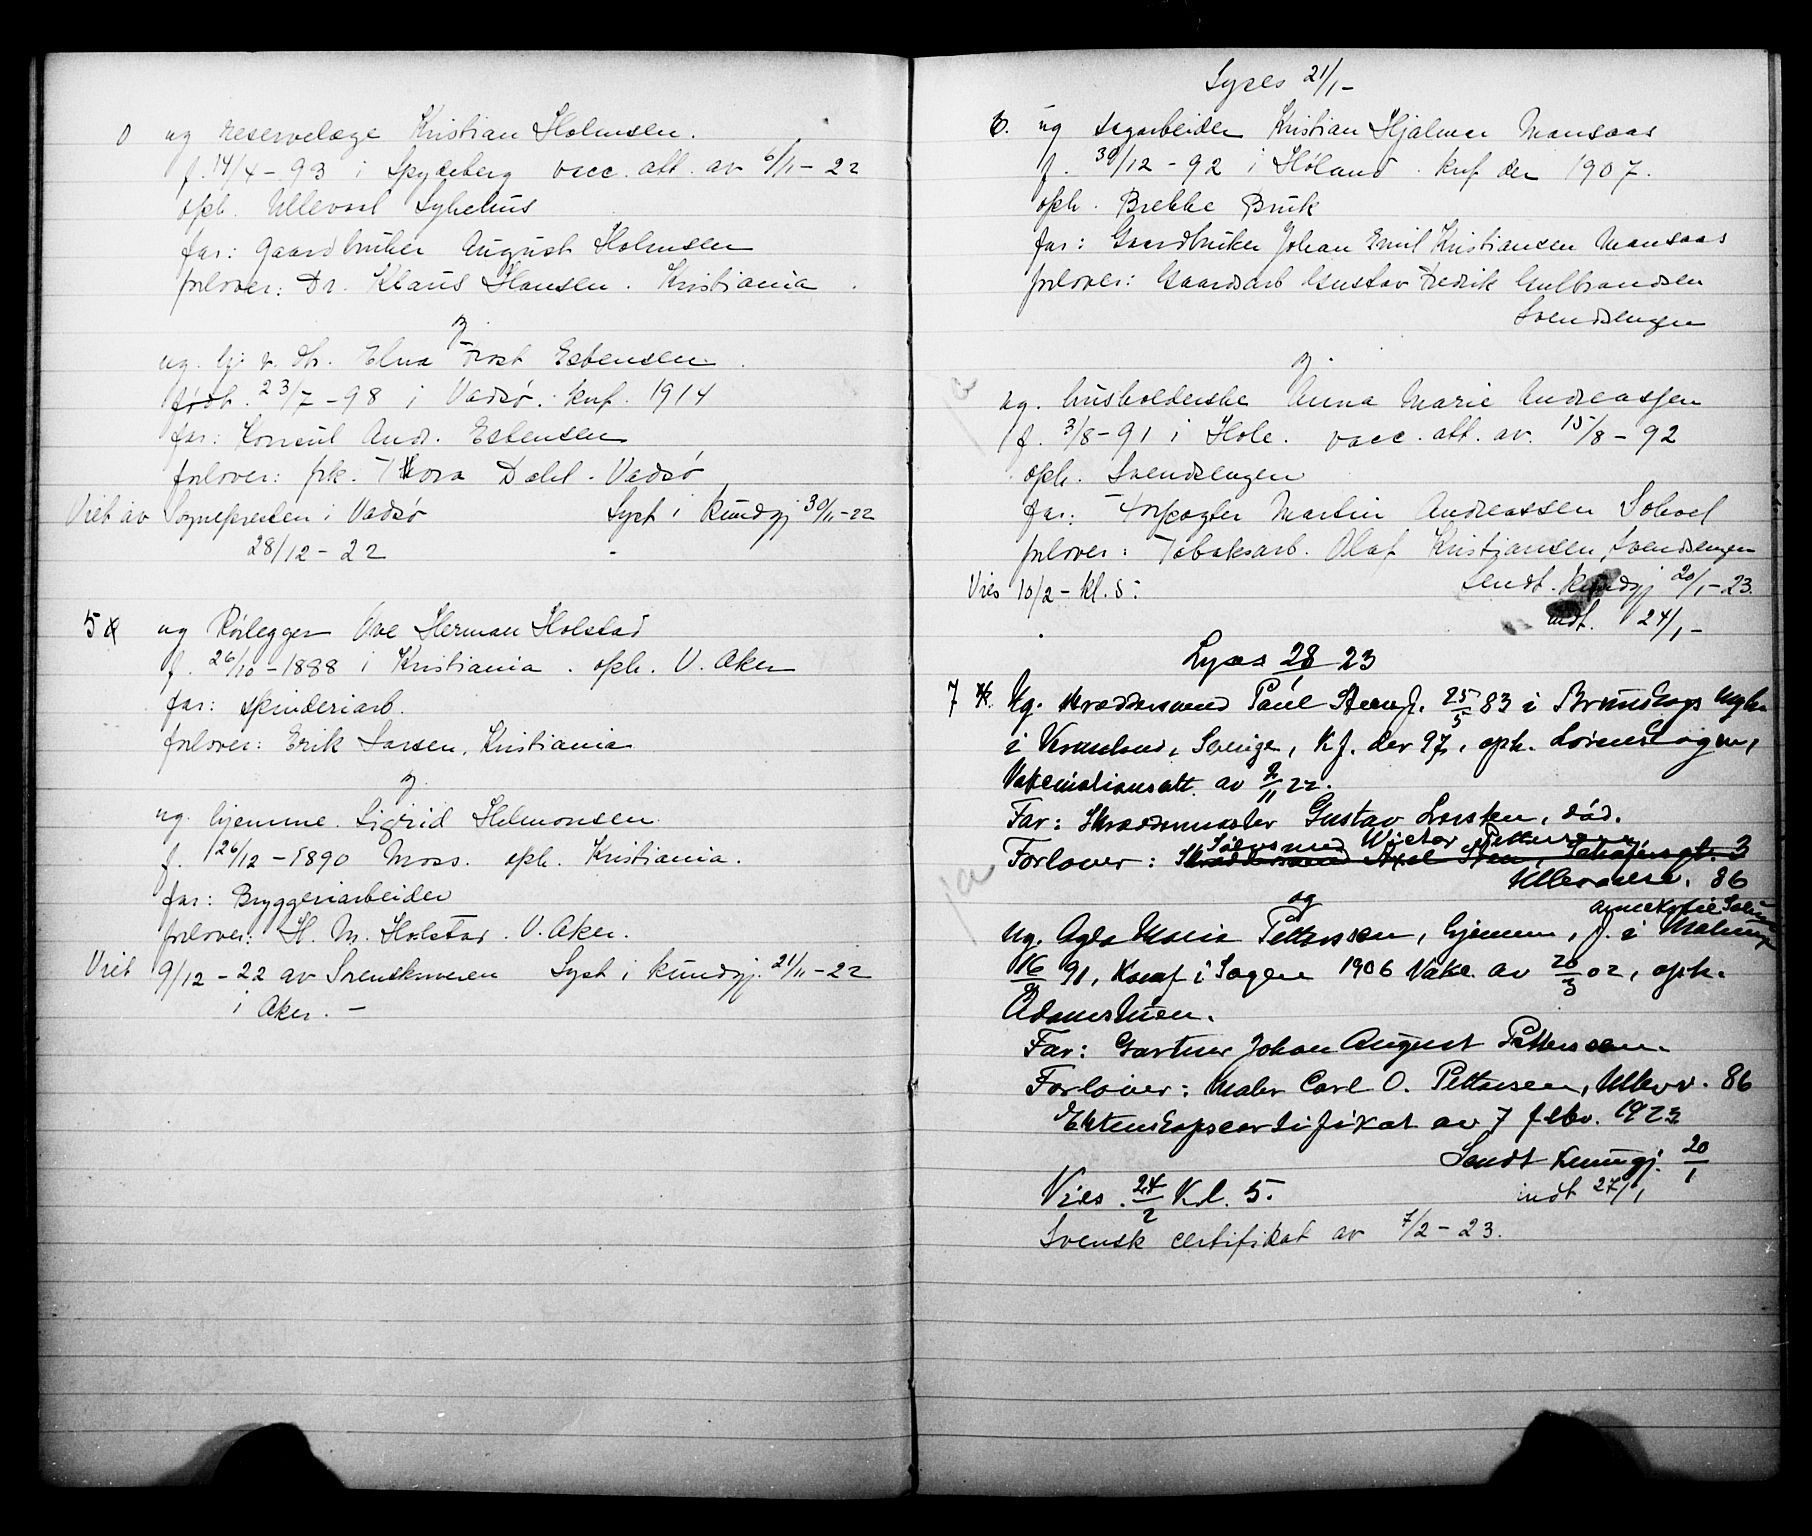 0 ug reservelæge Kristian Holmsen.
f. 14/4 – 93 i Spydeberg vacc. att. av 6/11 – 22
oph. Ullevaal Sykehus
far: Gaardbruker August Holmsen
forlover: Dr. Klaus Hansen. Kristiania.
og
ug. hj. v. Elna Frost Esbensen.
født. 23/7 – 98 i Vadsø. knf. 1914
far: Konsul Andr. Esbensen
forlover: frk. Thora Dahl. Vadsø
Viet av Sognepresten i Vadsø Lyst i Kundgj 30/11 – 22
28/12 – 22
5 ug Rørlegger Ove Herman Holstad
f. 26/10 – 1888 i Kristiania. oph. V. Aker
far: spinderiarb.
forlover: Erik Larsen, Kristiania
og
ug. hjemme. Sigrid Helmonsen.
f. 26/12 – 1890 Moss. oph. Kristiania.
far: Bryggeriarbeider
forlover: H. M. Holstad. V. Aker.
Viet 9/12 – 22 av Lyst i kundgj. 21/11 – 22
i Aker. –
Lyses 21/1 –
6. ug sagarbeider Kristian Hjalmar Mansaas
f. 30/12 – 92 i Høland. knf der 1907.
oph. Brekke Bruk
far: Gaardbruker Johan Emil Kristiansen Mansaas
forlover: Gaardsarb Gustav Fredrik Gulbrandsen
Svendsengen
og
ja
ug. husholderske Anna Marie Andreassen
f. 3/8 – 91 i Hole. vacc. att. av. 15/8 – 92
oph. Svendsengen
far: Forpagter Martin Andreassen Solvol
forlover: Tobaksarb. Olaf Kristiansen, Svendsengen
Vies 10/2 – kl. 5: Sendt. Kundgj 20/1 – 23.
indt. 24/1 –
Lyses 28/1 23
7 Ug. skræddersvend Paul Steen f. 25/5 83 i Brunskogs
i Vermland, Sverige, K.f. der 97, oph. Lørenskogen,
Vakcinationsatt. av 2/11 22.
Far: Skræddermester Gustav Larsson, død.
Sølvsmed Victor Pettersen
Forlover: Skræddersvend Axel Steen, 3
Ullevaalsv. 86
ja
og
Ug. Agda Maria Pettersson, hjemme, f. i
16/8 91, Konf i Sagene 1906 Vakc. av 20/3 02, oph.
Adamstuen.
Far: Gartner Johan August Pettersson.
Forlover: Maler Carl O. Pettersen, Ullevv. 86
Ektenskapscertifikat av 7 febr. 1923
Sendt Kungj. 20/1
Vies. 24/2 Kl. 5. indt 27/1
Svensk certifikat av 7/2 – 23.